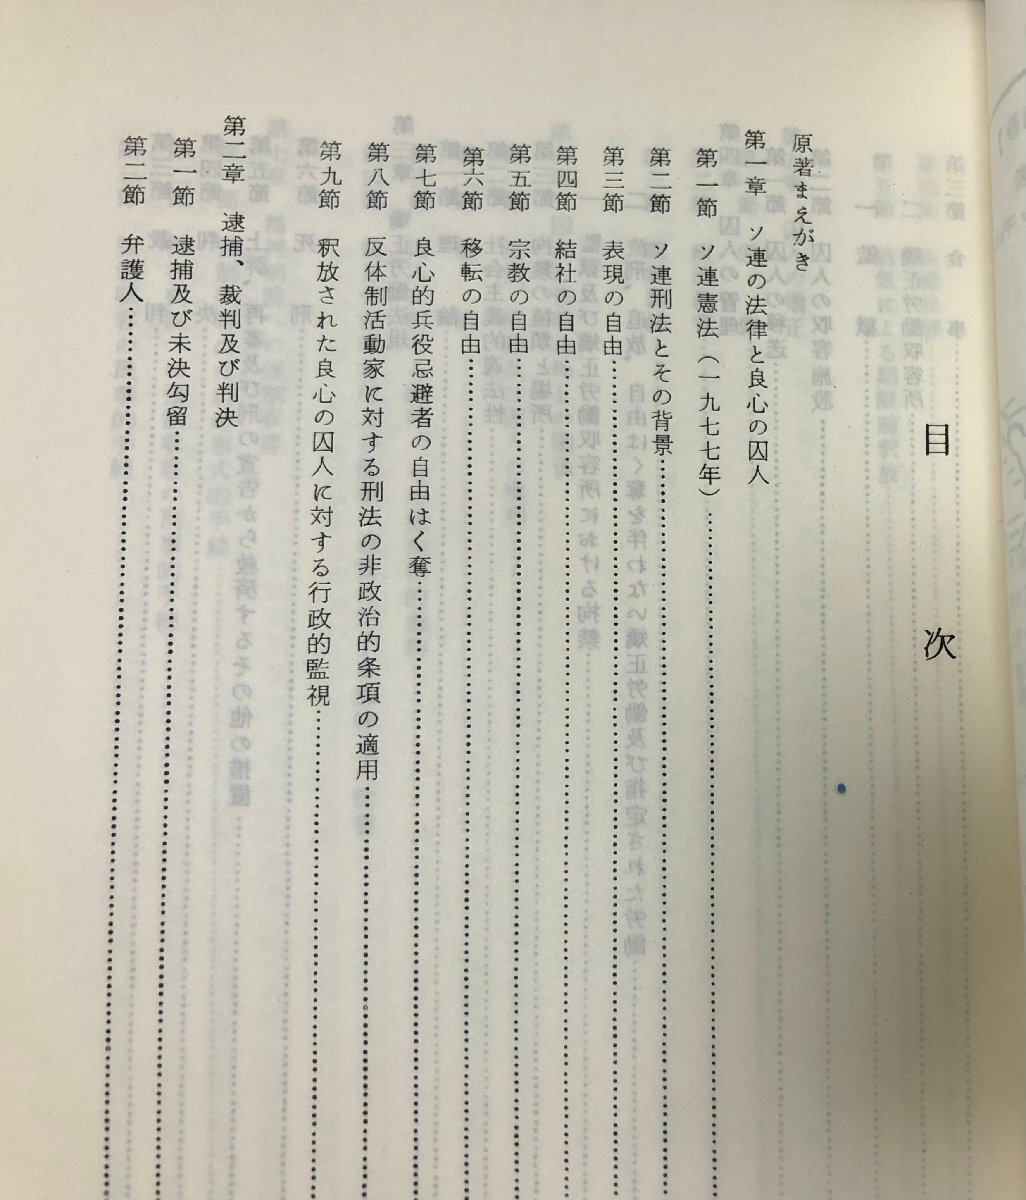 目次
原著まえがき
第一章 ソ連の法律と良心の囚人
第一節 ソ連憲法(一九七七年)
第二節 ソ連刑法とその背景
第三節 表現の自由
第四節 結社の自由
第五節 宗教の自由
第六節 移転の自由
第七節 良心的兵役忌避者の自由はく奪
第八節 反体制活動家に対する刑法の非政治的条項の適用
第九節 釈放された良心の囚人に対する行政的監視
第二章 逮捕、裁判及び判決
第一節 逮捕及び未決勾留
第二節 弁護人